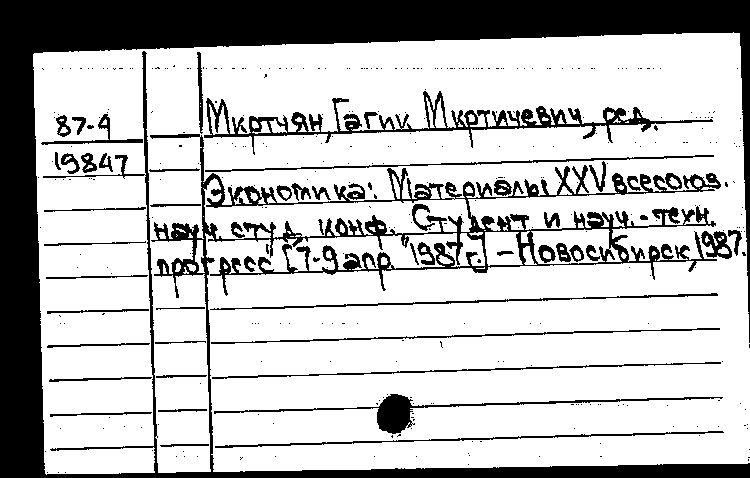 87-4
Мкртчян, Гагик Мкртичевич, ред.
19847
Экономика: Материалы XXV всесоюз.
науч. студ. конф. "Студент и науч.-техн.
прогресс" [7-9 апр. 1987 г.] – Новосибирск, 1987.